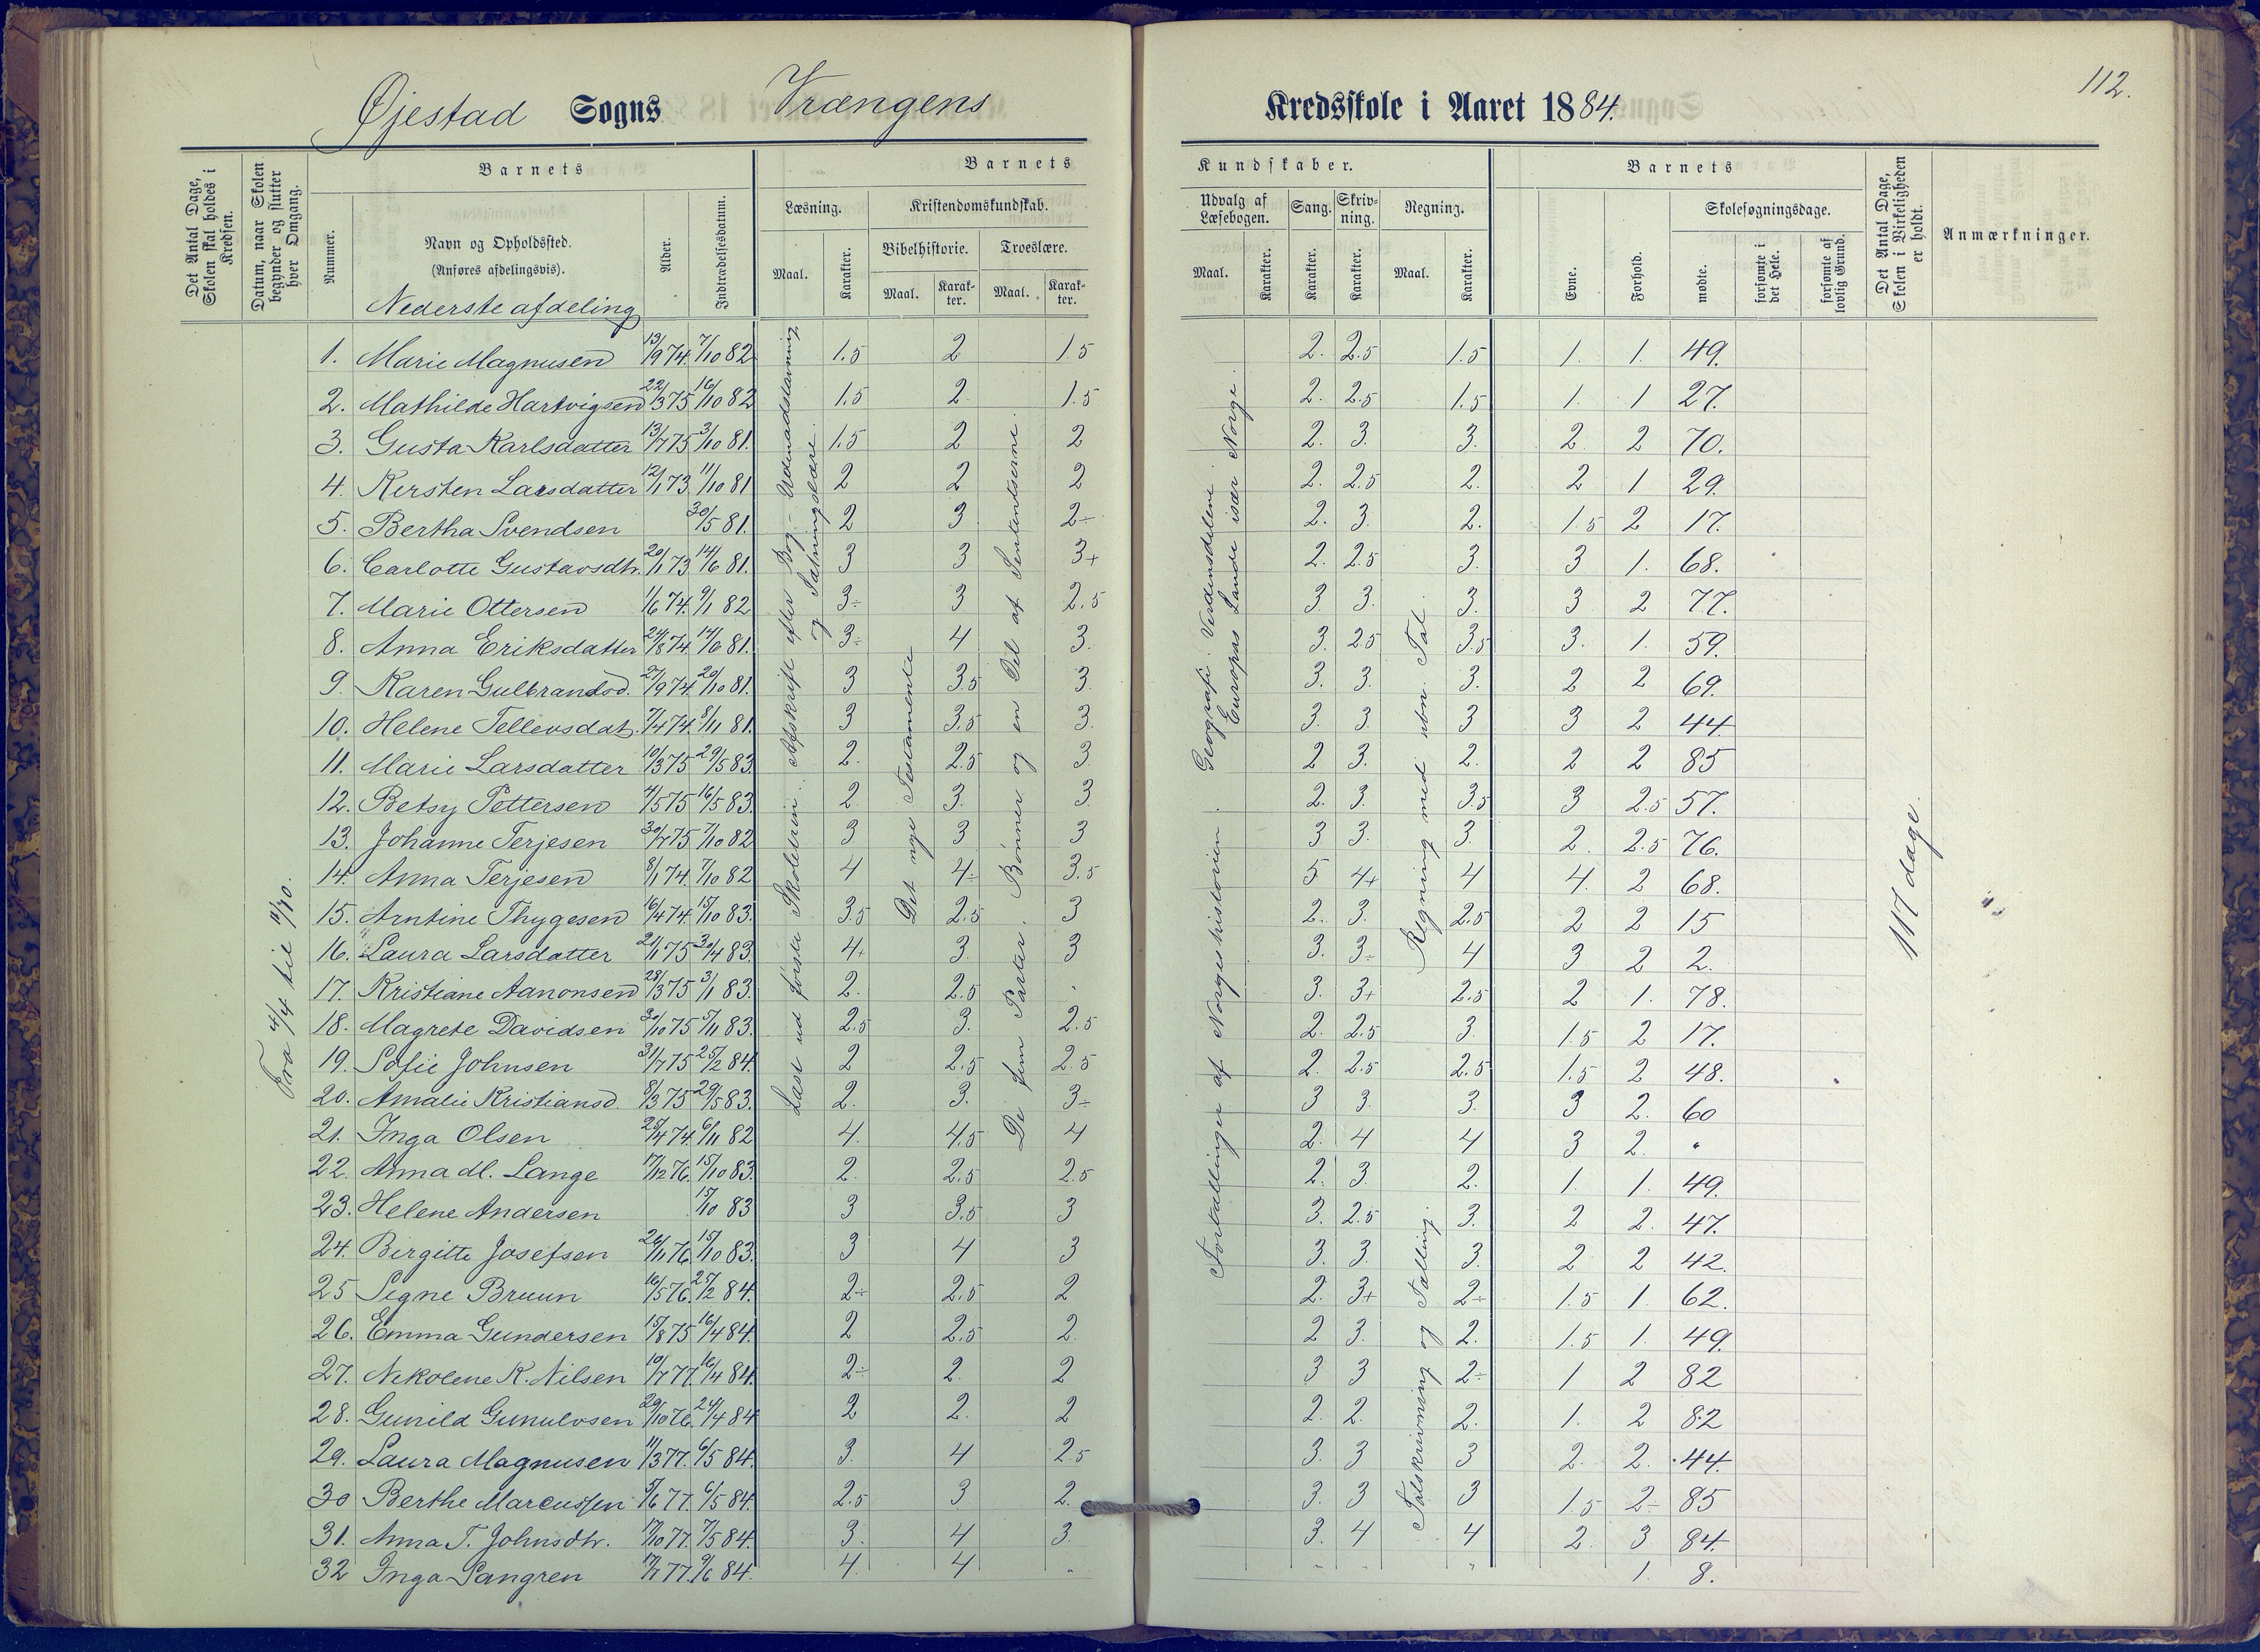 112.
Øjestad Sogns Vrængens Kredsskole i Aaret 1884.
Det Antal Dage, Skolen skal holdes i Kredsen.
Datum, naar Skolen begynder og slutter hver Omgang.
Barnets
Nummer.
Navn og Opholdssted.
(Anføres afdelingsvis).
Nederste afdeling
Alder.
Indtrædelsesdatum.
Barnets Kundskaber.
Læsning.
Maal.
Karakter.
Kristendomskundskab.
Bibelhistorie.
Maal.
Karakter.
Troeslære.
Maal.
Karakter.
Udvalg af Læsebogen.
Maal.
Karakter.
Sang.
Karakter.
Skrivning.
Karakter.
Regning.
Maal.
Karakter.
Barnets
Evne.
Forhold.
Skolesøgningsdage.
mødte.
forsømte i det Hele.
forsømte af lovlig Grund.
Det Antal Dage, Skolen i Virkeligheden er holdt.
Anmærkninger.
Fra 4/4 til 11/10.
Læst ud første Skoletrin. Afskrift efter Bog. Udenadsstavning
og Sætningslære.
Det nye Testamente
De fem Parter. Bønner og en Del af Sententserne.
Fortællinger af Norgeshistorien. Geografi: Verdensdelene
Europas Lande især Norge.
Regning med ubn. Tal.
Talskrivning og Tælling.
117 dage.
1. Marie Magnusen 13/9 74. 7/10 82 1.5 2 1.5 2. 2.5 1.5 1. 1. 49.
2. Mathilde Hartvigsen 22/3 75 16/10 82 1.5 2 1.5 2. 2.5 1.5 1. 1 27.
3. Gusta Karlsdatter 13/7 75 3/10 81. 1.5 2 2 2. 3. 3. 2. 2 70.
4. Kersten Larsdatter 12/1 73. 11/10 81 2 2 2 2. 2.5 2. 2 1 29.
5. Bertha Svendsen 30/5 81. 2 3 2÷ 2. 3. 2. 1.5 2 17.
6. Carlotte Gustavsdtr. 20/1 73 14/6 81. 3 3 3+ 2. 2.5 3. 3 1. 68.
7. Marie Ottersen 1/6 74. 9/1 82 3÷ 3 2.5 3. 3. 3. 3 2 77.
8. Anna Eriksdatter 24/8 74. 14/6 81. 3÷ 4 3. 3. 2.5 3.5 3. 1. 59.
9. Karen Gulbrandsd. 27/9 74. 20/10 81. 3 3.5 3. 3. 3. 3. 2 2 69.
10. Helene Tellevsdat. 7/4 74. 8/11 81. 3 3.5 3. 3. 3. 3 3 2 44.
11. Marie Larsdatter 10/3 75 29/5 83. 2. 2.5 3 2 3. 2. 2 2 85
12. Betsy Pettersen 4/5 75 16/5 83. 2. 3. 3. 2. 3. 3.5 3 2.5 57.
13. Johanne Terjesen 30/7 75 7/10 82 3 3 3 3 3. 3. 2. 2.5 76.
14. Anna Terjesen 8/1 74. 7/10 82 4 4÷ 3.5 5 4+ 4 4. 2 68.
15. Arntine Thygesen 16/4 74. 15/10 83. 3.5 2.5 3 2. 3. 2.5 2 2 15
16. Laura Larsdatter 21/1 75 30/4 83. 4+ 3. 3 3. 3÷ 4 3 2 2.
17. Kristiane Aanonsen 28/3 75 3/1 83. 2. 2.5 . 3. 3+ 2.5 2 1. 78.
18. Magrete Davidsen 30/10 75 5/11 83. 2.5 3. 2.5 2. 2.5 3. 1.5 2 17.
19. Sofie Johnsen 31/7 75 25/2 84. 2 2.5 2.5 2. 2.5 2.5 1.5 2 48.
20. Amalie Kristiansd. 8/3 75 29/5 83. 2. 3. 3÷ 3 3. 3. 3 2. 60
21. Inga Olsen 25/4 74. 6/11 82 4. 4.5 4 2. 4 4 3 2. "
22. Anna dl. Lange 17/12 76. 15/10 83. 2. 2.5 2.5 2. 3. 2. 1. 1. 49.
23. Helene Andersen 15/10 83 3 3.5 3 3. 2.5 3. 2 2. 47.
24. Birgitte Josefsen 26/11 76. 15/10 83. 3 4 3 3. 3. 3. 2 2 42.
25 Segne Bruun 16/5 76. 27/2 84. 2÷ 2.5 2 2. 3+ 2÷ 1.5 1. 62.
26. Emma Gundersen 15/8 75 16/4 84. 2 2.5 2. 2 3. 2. 1.5 1. 49.
27. Nikolene K. Nilsen 10/7 77. 16/4 84. 2÷ 2. 2 3 3 2÷ 1 2 82
28. Gunild Gunulvsen 29/10 76. 24/4 84 2 2. 2 2. 2. 2. 1. 2 82
29. Laura Magnusen 11/3 77. 6/5 84. 3. 4 2.5 3. 3 3 2. 2. 44.
30 Berthe Marcussen 9/6 77. 6/5 84. 2.5 3 2. 3. 3 3 1.5 2÷ 85
31. Anna T. Johnsdtr. 17/10 77. 7/5 84. 3. 4 3. 3. 4 4 2. 3 84.
32 Inga Sangren 17/7 77. 9/6 84. 4. 4 " " " 1. 8.